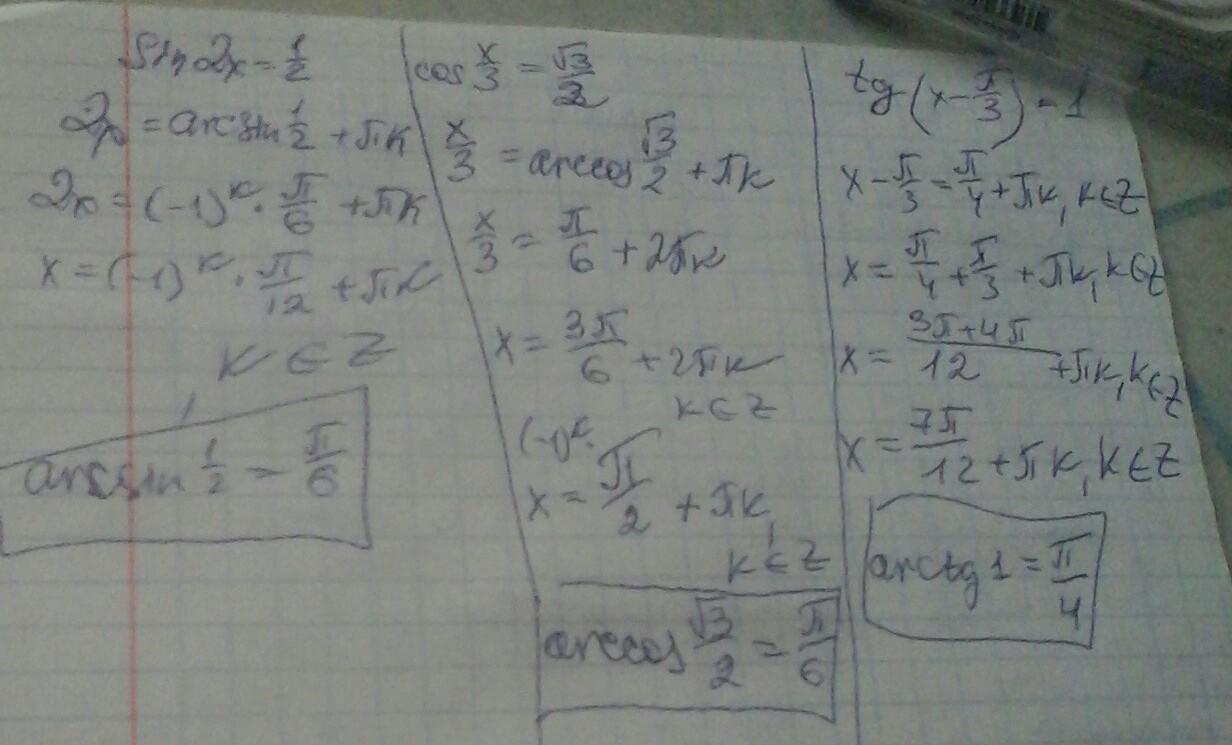 sin 2x = 1/2
2x = arcsin 1/2 + πk
2x = (-1)^k · π/6 + πk
x = (-1)^k · π/12 + πk
k ∈ Z
arcsin 1/2 = π/6
cos x/3 = √3/2
x/3 = arccos √3/2 + πk
x/3 = π/6 + 2πk
x = 3π/6 + 2πk
k ∈ Z
(-1)^k ·
x = π/2 + πk,
k ∈ Z
arccos √3/2 = π/6
tg (x - π/3) = 1
x - π/3 = π/4 + πk, k ∈ Z
x = π/4 + π/3 + πk, k ∈ Z
x = 3π+4π/12 + πk, k ∈ Z
x = 7π/12 + πk, k ∈ Z
arctg 1 = π/4